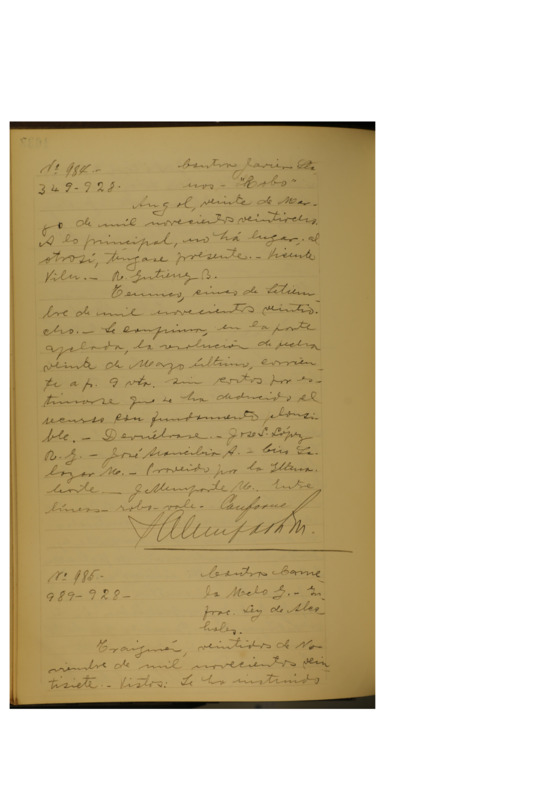 Nº 984.- Contra Javier Lla
349-928. nos - "Robo"
Angol, veinte de Mar-
zo de mil novecientos veintiocho.
A lo principal, no há lugar, al
otrosí, téngase presente. - Vicente
R. Gutierrez B.
Temuco, cinco de Setiem-
bre de mil novecientos veintio-
cho. - Se confirma, en la parte
apelada, la resolución de fecha
veinte de Marzo último, corrien-
te a fs. 9 vta. sin costas por es-
timarse que se ha deducido el
recurso con fundamento plausi-
ble. - Devuélvase. - José S. López
R. G. - José Arancibia A. - Luis Sa-
lazar M. - Proveido por la Iltma.
Corte. - M. Entre
líneas - robo - vale. Conforme
Nº 985.- Contra Carme
989-928- la Melo G. - In-
frac. Ley de Alco
holes.
Traiguén, veintidos de No-
viembre de mil novecientos vein
tisiete. - Vistos: Se ha instruido